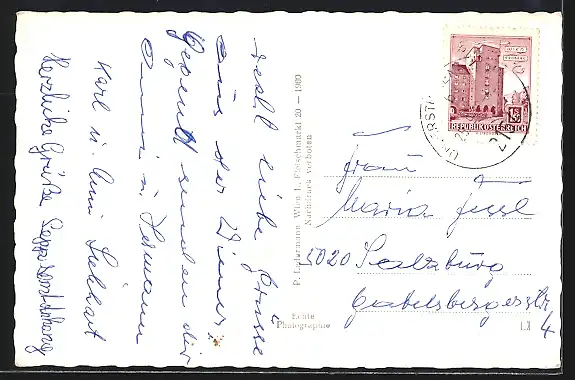 Recht liebe Grüsse
aus der Wiener
Gegend senden dir
Anni u. Hermann
Karl u. Anni
Herzliche Grüße Sepp
P. Ledermann Wien I., Fleischmarkt 20 – 1960
Nachdruck verboten
Echte
Photographie
WIEN
REPUBLIK ÖSTERREICH
Frau
Maria
5020 Salzburg
Gabelsbergerstr
4